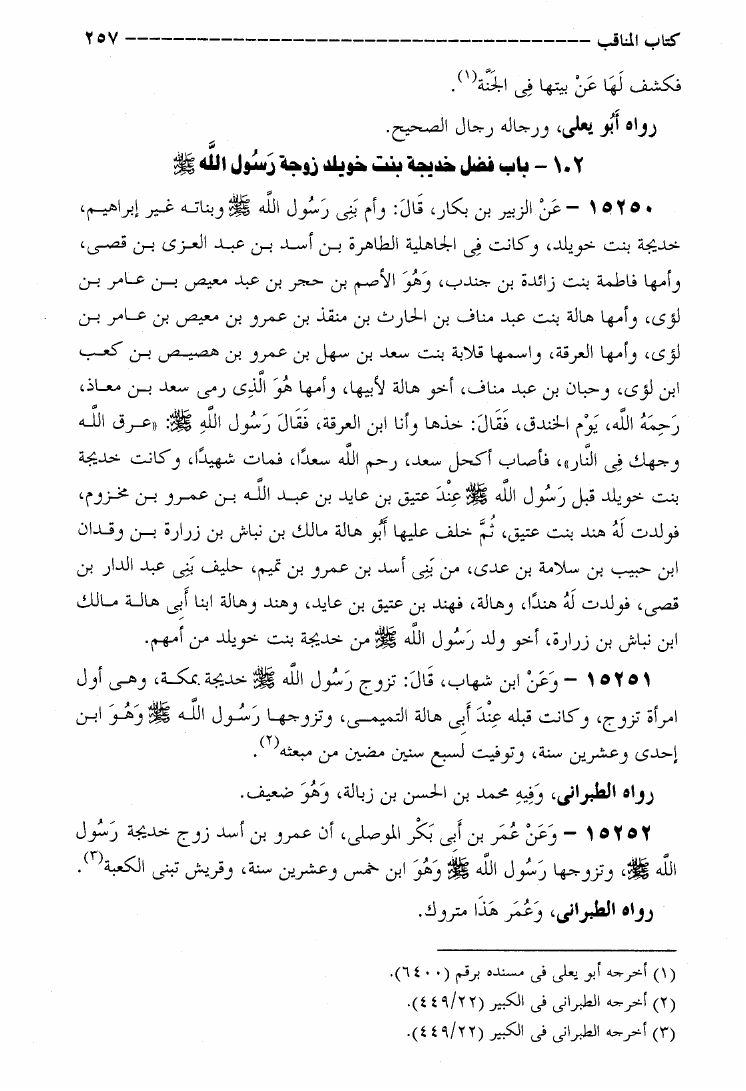 كتاب المناقب ------------------------------------------ ٢٥٧
فكشف لَهَا عَنْ بيتها فِى الجَنَّة(١).
رواه أَبُو يعلى، ورجاله رجال الصحيح.
١٠٢ – باب فضل خديجة بنت خويلد زوجة رَسُول اللَّه ﷺ
١٥٢٥٠ – عَنْ الزبير بن بكار، قَالَ: وأم بَنِى رَسُول اللَّه ﷺ وبناته غير إبراهيم،
خديجة بنت خويلد، وكانت فِى الجاهلية الطاهرة بن أسد بن عبد العزى بن قصى،
وأمها فاطمة بنت زائدة بن جندب، وَهُوَ الأصم بن حجر بن عبد معيص بن عامر بن
لؤى، وأمها هالة بنت عبد مناف بن الحارث بن منقذ بن عمرو بن معيص بن عامر بن
لؤى، وأمها العرقة، واسمها قلابة بنت سعد بن سهل بن عمرو بن هصيص بن كعب
ابن لؤى، وحبان بن عبد مناف، أخو هالة لأبيها، وأمها هُوَ الَّذِى رمى سعد بن معاذ،
رَحِمَهُ اللَّه، يَوْم الخندق، فَقَالَ: خذها وأنا ابن العرقة، فَقَالَ رَسُول اللَّهِ ﷺ: «عرق اللَّه
وجهك فِى النَّار»، فأصاب أكحل سعد، رحم اللَّه سعدًا، فمات شهيدًا، وكانت خديجة
بنت خويلد قبل رَسُول اللَّه ﷺ عِنْدَ عتيق بن عايد بن عبد اللَّه بن عمرو بن مخزوم،
فولدت لَهُ هند بنت عتيق، ثُمَّ خلف عليها أَبُو هالة مالك بن نباش بن زرارة بن وقدان
ابن حبيب بن سلامة بن عدى، من بَنِى أسد بن عمرو بن تميم، حليف بَنِى عبد الدار بن
قصى، فولدت لَهُ هندًا، وهالة، فهند بن عتيق بن عايد، وهند وهالة ابنا أَبِى هالة مالك
ابن نباش بن زرارة، أخو ولد رَسُول اللَّه ﷺ من خديجة بنت خويلد من أمهم.
١٥٢٥١ – وَعَنْ ابن شهاب، قَالَ: تزوج رَسُول اللَّه ﷺ خديجة بمكة، وهى أول
امرأة تزوج، وكانت قبله عِنْدَ أَبِى هالة التميمى، وتزوجها رَسُول اللَّه ﷺ وَهُوَ ابن
إحدى وعشرين سنة، وتوفيت لسبع سنين مضين من مبعثه(٢).
رواه الطبرانى، وَفِيهِ محمد بن الحسن بن زبالة، وَهُوَ ضعيف.
١٥٢٥٢ – وَعَنْ عُمَر بن أَبِى بَكْر الموصلى، أن عمرو بن أسد زوج خديجة رَسُول
اللَّه ﷺ، وتزوجها رَسُول اللَّه ﷺ وَهُوَ ابن خمس وعشرين سنة، وقريش تبنى الكعبة(٣).
رواه الطبرانى، وَعُمَر هَذَا متروك.
(١) أخرجه أبو يعلى فى مسنده برقم (٦٤٠٠).
(٢) أخرجه الطبرانى فى الكبير (٤٤٩/٢٢).
(٣) أخرجه الطبرانى فى الكبير (٤٤٩/٢٢).